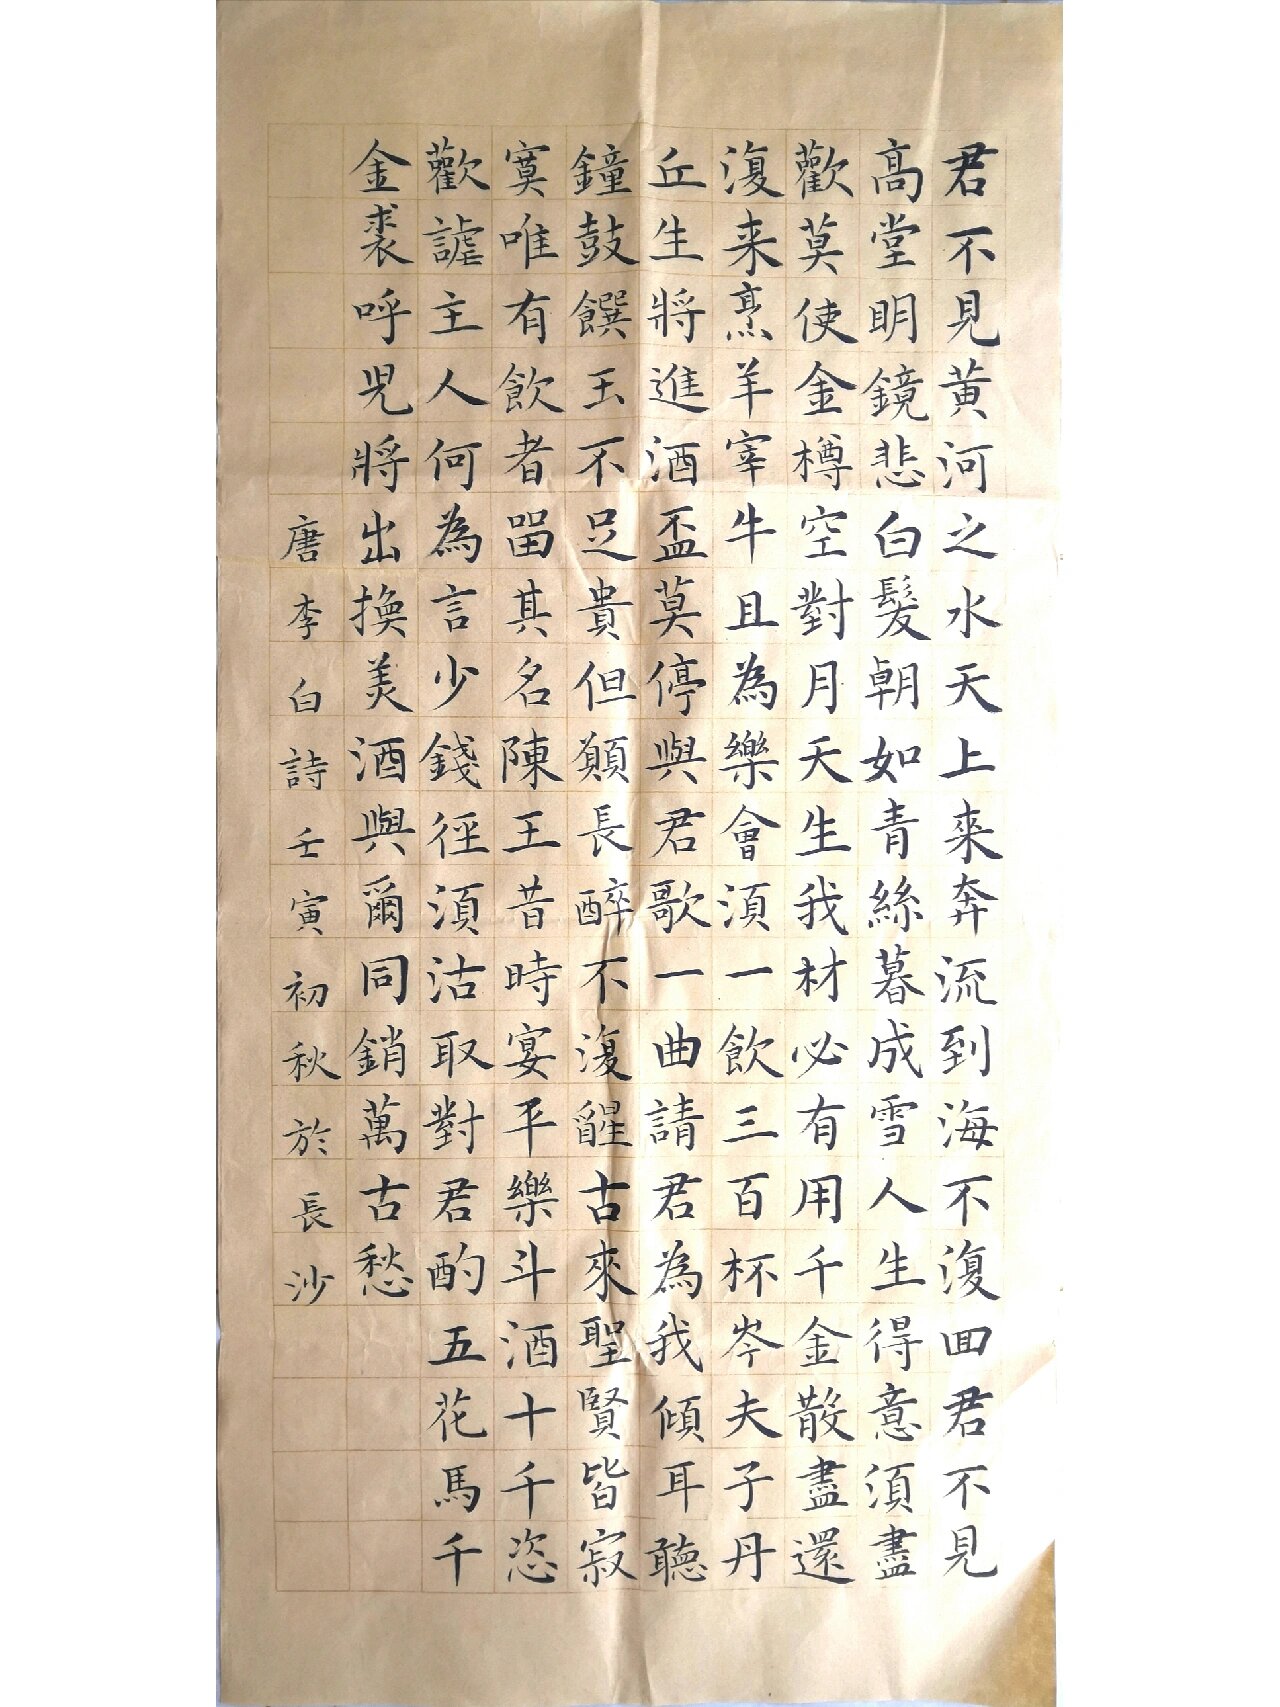 君不見黃河之水天上來奔流到海不復回君不見
高堂明鏡悲白髮朝如青絲暮成雪人生得意須盡
歡莫使金樽空對月天生我材必有用千金散盡還
復来烹羊宰牛且為樂會須一飲三百杯岑夫子丹
丘生將進酒盃莫停與君歌一曲請君為我傾耳聽
鐘鼓饌玉不足貴但願長醉不復醒古來聖賢皆寂
寞唯有飲者留其名陳王昔時宴平樂斗酒十千恣
歡謔主人何為言少錢徑須沽取對君酌五花馬千
金裘呼児將出換美酒與爾同銷萬古愁
唐李白詩壬寅初秋於長沙